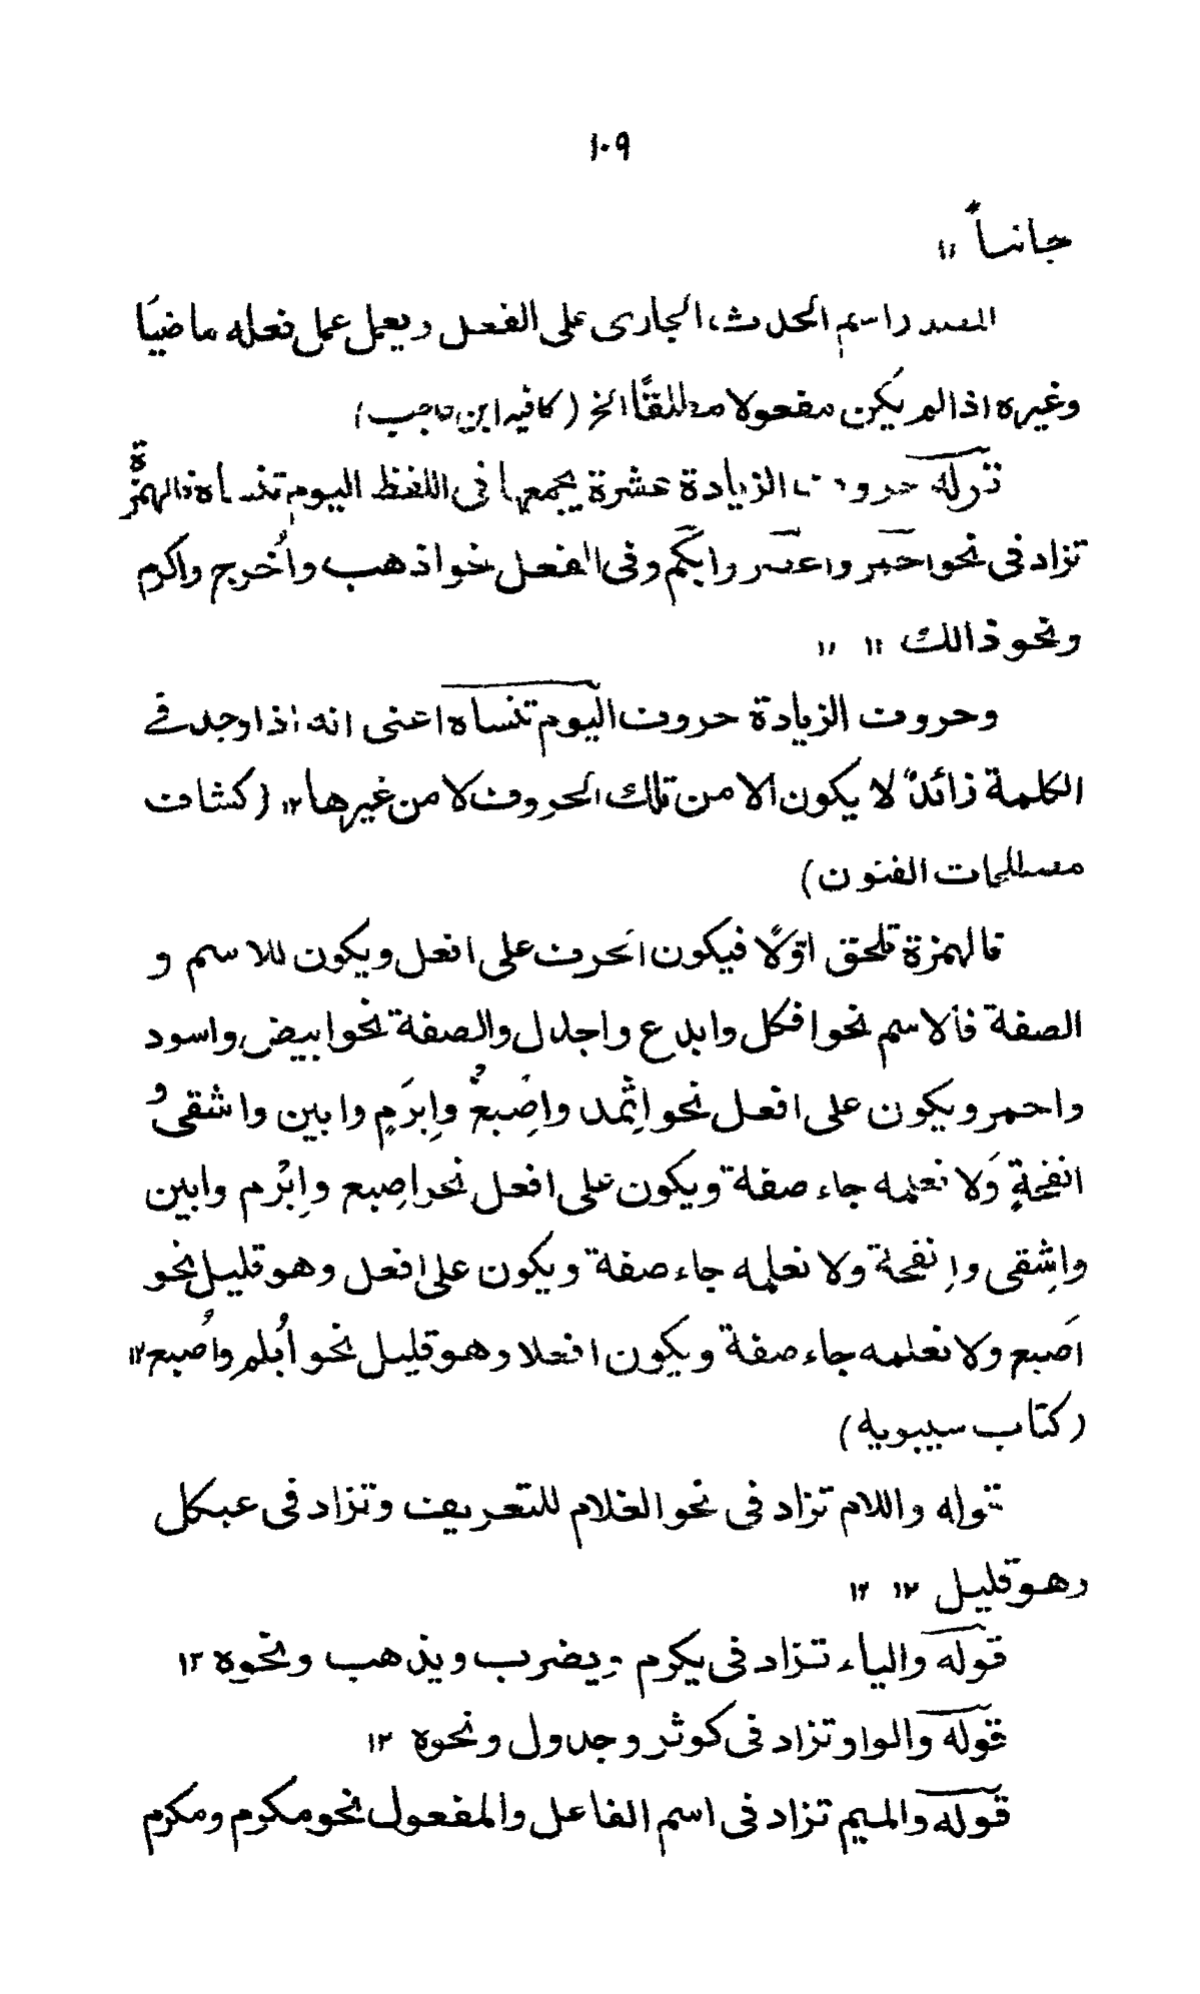 ١٠٩
جانباً ١٢
المصدر اسم الحدث الجاری علی الفعل ویعمل عمل فعله ماضیًا
وغیره اذا لم یکن مفعولا مطلقًا الخ (کافیه ابن حاجب)
قوله حروف الزیادة عشرة یجمعها فی اللفظ الیوم تنساه فالهمزة
تزاد فی نحو احمر واعسر وابکم وفی الفعل نحو اذهب واُخرج واکرم
ونحو ذالك ١٢ ١٢
وحروف الزیادة حروف الیوم تنساه اعنی انه اذا وجد فے
الکلمة زائدٌ لا یکون الا من تلك الحروف لا من غیرها ١٢ (کشاف
مصطلحات الفنون)
فالهمزة تلحق اوّلًا فیکون الحرف علی افعل ویکون للاسم و
الصفة فالاسم نحو افکل وابدع واجدل والصفة نحو ابیض واسود
واحمر ویکون علی افعل نحو اِثْمد واِصْبعٌ واِبرَمٍ وابین واشقیٌ و
انفحةٍ وَلا نعلمه جاء صفة ویکون علی افعل نحو اِصبع واِبْرم وابین
واِشقی واِنفحة ولا نعلمه جاء صفة ویکون علی افعل وهو قلیل نحو
اَصبع ولا نعلمه جاء صفة ویکون افعلا وهو قلیل نحو اُبلُم واُصبع ١٢
(کتاب سیبویه)
قوله واللام تزاد فی نحو الغلام للتعریف وتزاد فی عبکل
وهو قلیل ١٢ ١٢
قوله والیاء تزاد فی یکرم ویضرب ویذهب ونحوه ١٢
قوله والواو تزاد فی کوثر وجدول ونحوه ١٢
قوله والمیم تزاد فی اسم الفاعل والمفعول نحو مکرم ومکرم